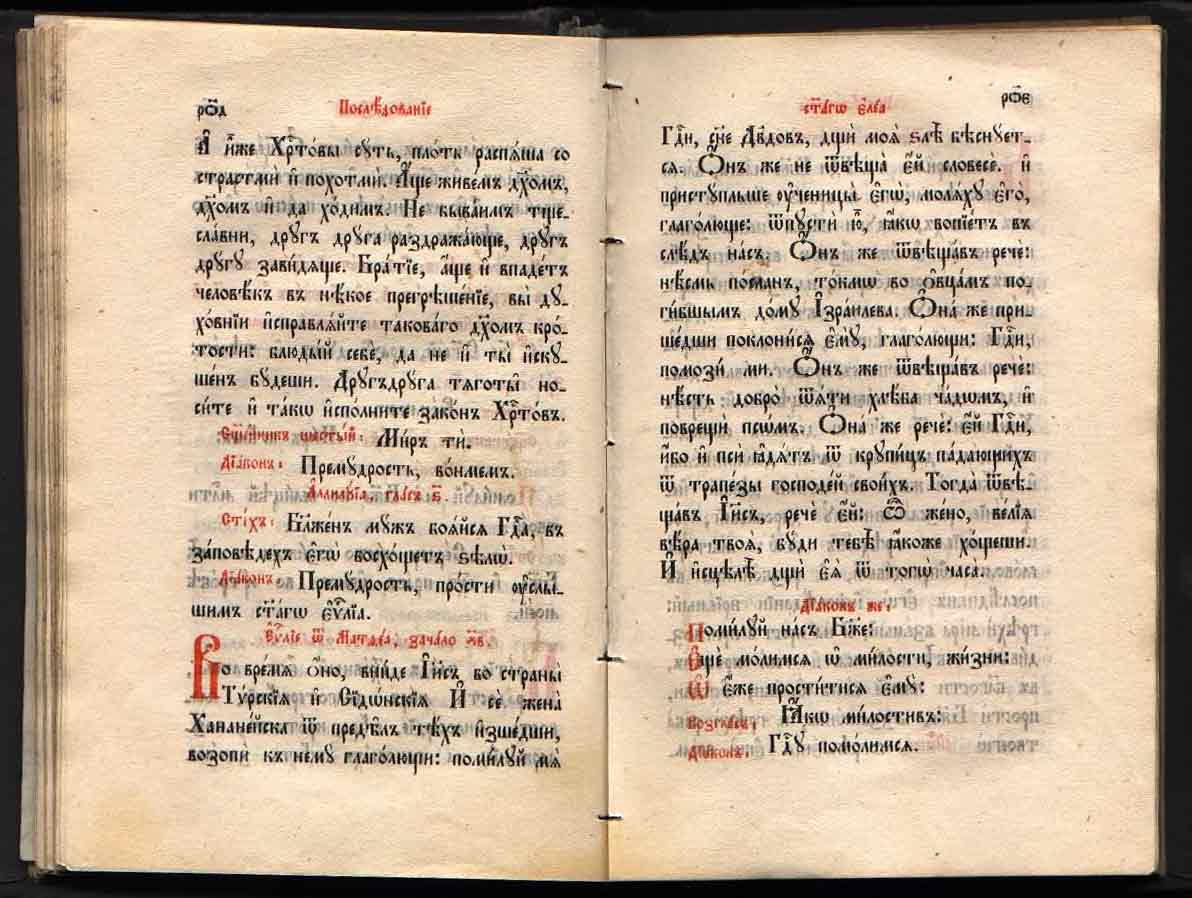 рѻ҃д
Послѣ́дованїе
А҆ и҆́же Хрⷭ҇то́вы сꙋ́ть, пло́ть распѧ́ша со
страстмѝ и҆ похотмѝ. А҆́ще живе́мъ дꙋ́хомъ,
дꙋ́хомъ и҆ да хо́димъ. Не быва́имъ тще-
сла́вни, дрꙋ́гъ дрꙋ́га раздража́юще, дрꙋ́гъ
дрꙋ́гꙋ зави́дѧще. Бра́тїе, а҆́ще и҆ впаде́тъ
человѣ́къ въ нѣ́кое прегрѣше́нїе, вы̀ дꙋ-
хо́внїи и҆справлѧ́йте таково́аго дꙋ́хомъ кро́-
тости: блюды́й себѐ, да не и҆ ты̀ и҆скꙋ-
ше́нъ бꙋ́деши. Дрꙋ́гъдрꙋ́га тѧготы̀ но-
си́те и҆ та́кѡ и҆спо́лните зако́нъ Хрⷭ҇то́въ.
Сщ҃е́нникъ шесты́й: Ми́ръ тѝ.
Дїа́конъ: Премꙋ́дрость, во́нмемъ.
А҆ллилꙋ́їа, гла́съ в҃.
Сті́хъ: Бл҃же́нъ мꙋ́жъ боѧ́йсѧ Гдⷭ҇а, въ
за́поведехъ є҆гѡ̀ восхо́щетъ ѕѣлѡ̀.
Дїа́конъ: Премꙋ́дрость, про́сти ᲂу҆слы́-
шимъ ст҃а́гѡ є҆ѵⷢ҇лїа.
Є҆ѵⷢ҇лїе ѿ Матѳе́а, зача́ло ѯ҃в.
Во вре́мѧ ѻ҆́но, вни́де І҆и҃съ во страны̀
Тѵ́рскїѧ и҆ Сїдѡ́нскїѧ И҆ сѐ, жена̀
Ханане́йска ѿ предѣ̑лъ тѣ́хъ и҆зше́дши,
возопѝ къ немꙋ̀ глаго́лющи: поми́лꙋй мѧ̀
рѻ҃є
ст҃а́гѡ є҆ле́а
Гдⷭ҇и, сн҃е Дв҃довъ, дщѝ моѧ̀ ѕлѣ̀ бѣснꙋ́ет-
сѧ. Ѻ҆́нъ же не ѿвѣща̀ є҆́й словесѐ. и҆
пристꙋ́пльше ᲂу҆ченицы̀ є҆гѡ̀, молѧ́хꙋ є҆го̀,
глаго́люще: ѿпꙋстѝ ю҆̀, ꙗ҆́кѡ вопїе́тъ въ
слѣ́дъ на́съ. Ѻ҆́нъ же ѿвѣща́въ речѐ:
нѣ́смь по́сланъ, то́кмѡ во ѻ҆вца́мъ по-
ги́бшымъ до́мꙋ І҆зра́илева. Ѻ҆на́ же при-
ше́дши поклони́сѧ є҆мꙋ̀, глаго́лющи: Гдⷭ҇и,
помозѝ ми. Ѻ҆́нъ же ѿвѣща́въ речѐ:
нѣ́сть добро̀ ѿѧ́ти хлѣ́ба ча́дѡмъ, и҆
поврещѝ псѡ́мъ. Ѻ҆на́ же речѐ: є҆́й Гдⷭ҇и,
и҆́бо и҆ псѝ ꙗ҆дѧ́тъ ѿ крꙋпи́цъ па́дающихъ
ѿ трапе́зы госпо́дей свои́хъ. Тогда̀ ѿвѣ-
ща́въ І҆и҃съ, речѐ є҆́й: Ѽ же́но, ве́лїѧ
вѣ́ра твоѧ̀, бꙋ́ди тебѣ̀ ꙗ҆́коже хо́щеши.
И҆ и҆сцѣлѣ̀ дщѝ є҆ѧ̀ ѿ тогѡ̀ часа̀.
Дїа́конъ же:
Поми́лꙋй на́съ Бж҃е:
Є҆щѐ мо́лимсѧ ѡ҆ ми́лости, жи́зни:
Ѡ҆ є҆́же прости́тисѧ є҆мꙋ̀:
Возгла́съ: Ꙗ҆́кѡ ми́лостивъ:
Дїа́конъ: Гдⷭ҇ꙋ помо́лимсѧ.